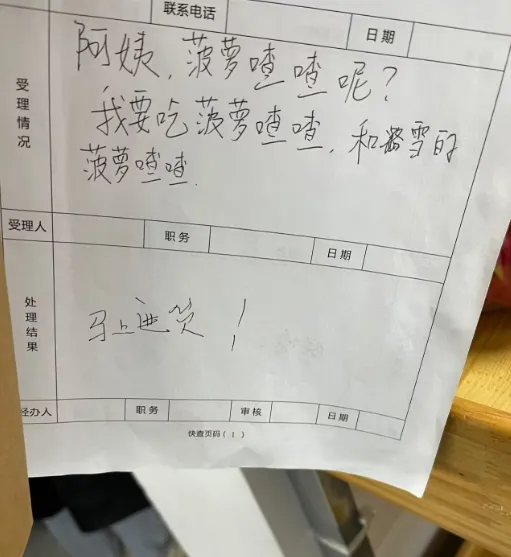 联系电话
日期
受理情况
阿姨,菠萝喳喳呢?
我要吃菠萝喳喳,和路雪的
菠萝喳喳.
受理人 职务 日期
处理结果
马上进货!
经办人 职务 审核 日期
快查页码(1)